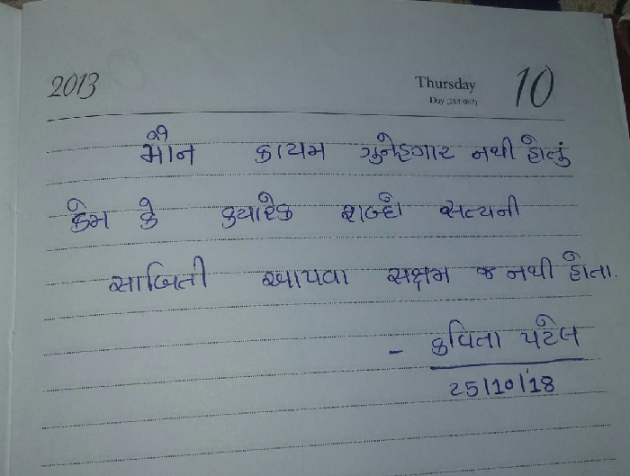 2013
Thursday 10
Day (283-082)
મૌન કાયમ ગુનેહગાર નથી હોતું
કેમ કે ક્યારેક શબ્દો સત્યની
સાબિતી આપવા સક્ષમ જ નથી હોતા.
- કવિતા પટેલ
25/10/18